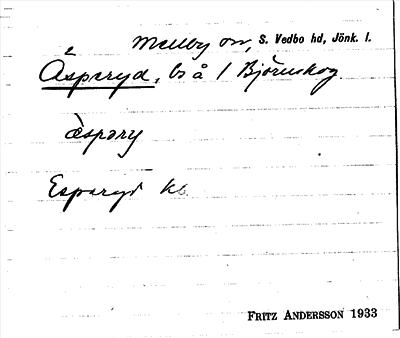 Mellby sn, S. Vedbo hd, Jönk. l.
Äsperyd, bs å / Björnskog
æspəry
Esperyd kb
FRITZ ANDERSSON 1933